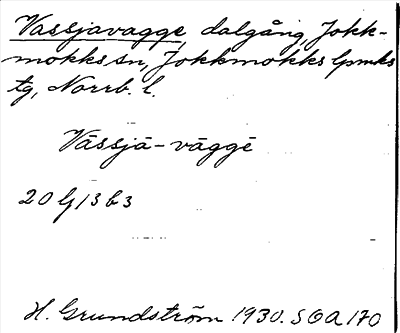 Vassjavagge, dalgång, Jokk-
mokks sn, Jokkmokks lpmks
tg, Norrb. l.
Vāssjā-vāggē
20 G 13 b 3
H. Grundström 1930. SOA 170